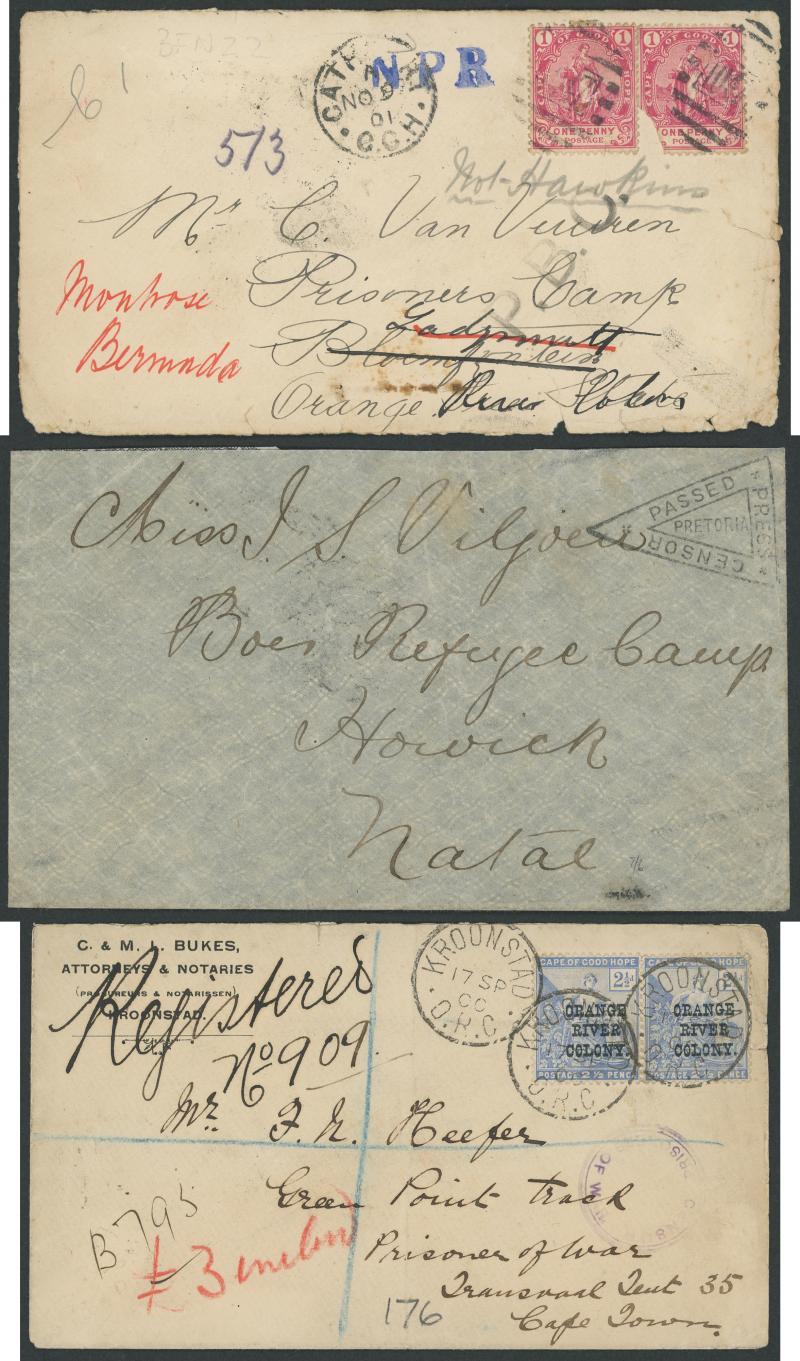 NPR
CATHCART
NO 9
01
C.G.H.
1 CAPE OF GOOD HOPE 1
ONE PENNY
POSTAGE
1 CAPE OF GOOD 1
ONE PENNY
POSTAGE
1
573
Not Hawkins
P.B.C.
Mr C. Van Vuuren
Prisoners Camp
Ladysmith
Bloemfontein
Orange River
Montrose
Bermuda
PASSED
PRESS
CENSOR
PRETORIA
Miss J S Viljoen
Boer Refugee Camp
Howick
Natal
7/6
C. & M. L. BUKES,
ATTORNEYS & NOTARIES
(PROCUREURS & NOTARISSEN)
KROONSTAD.
Registered
No 909
KROONSTAD
17 SP
00
O.R.C.
KROONSTAD
O.R.C
KROONSTAD
O.R.C
CAPE OF GOOD HOPE
2½
ORANGE
RIVER
COLONY.
POSTAGE 2½ PENCE
CAPE OF GOOD HOPE
2½
ORANGE
RIVER
COLONY.
POSTAGE 2½ PENCE
Mr. F. N. Heefer
Green Point track
Prisoner of War
Transvaal Tent 35
Cape Town.
OF W
B795
£3
176